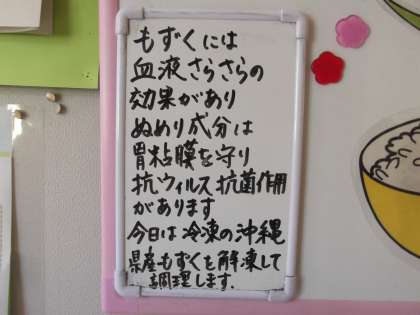 もずくには
血液さらさらの
効果があり
ぬめり成分は
胃粘膜を守り
抗ウィルス抗菌作用
があります
今日は冷凍の沖縄
県産もずくを解凍して
調理します.